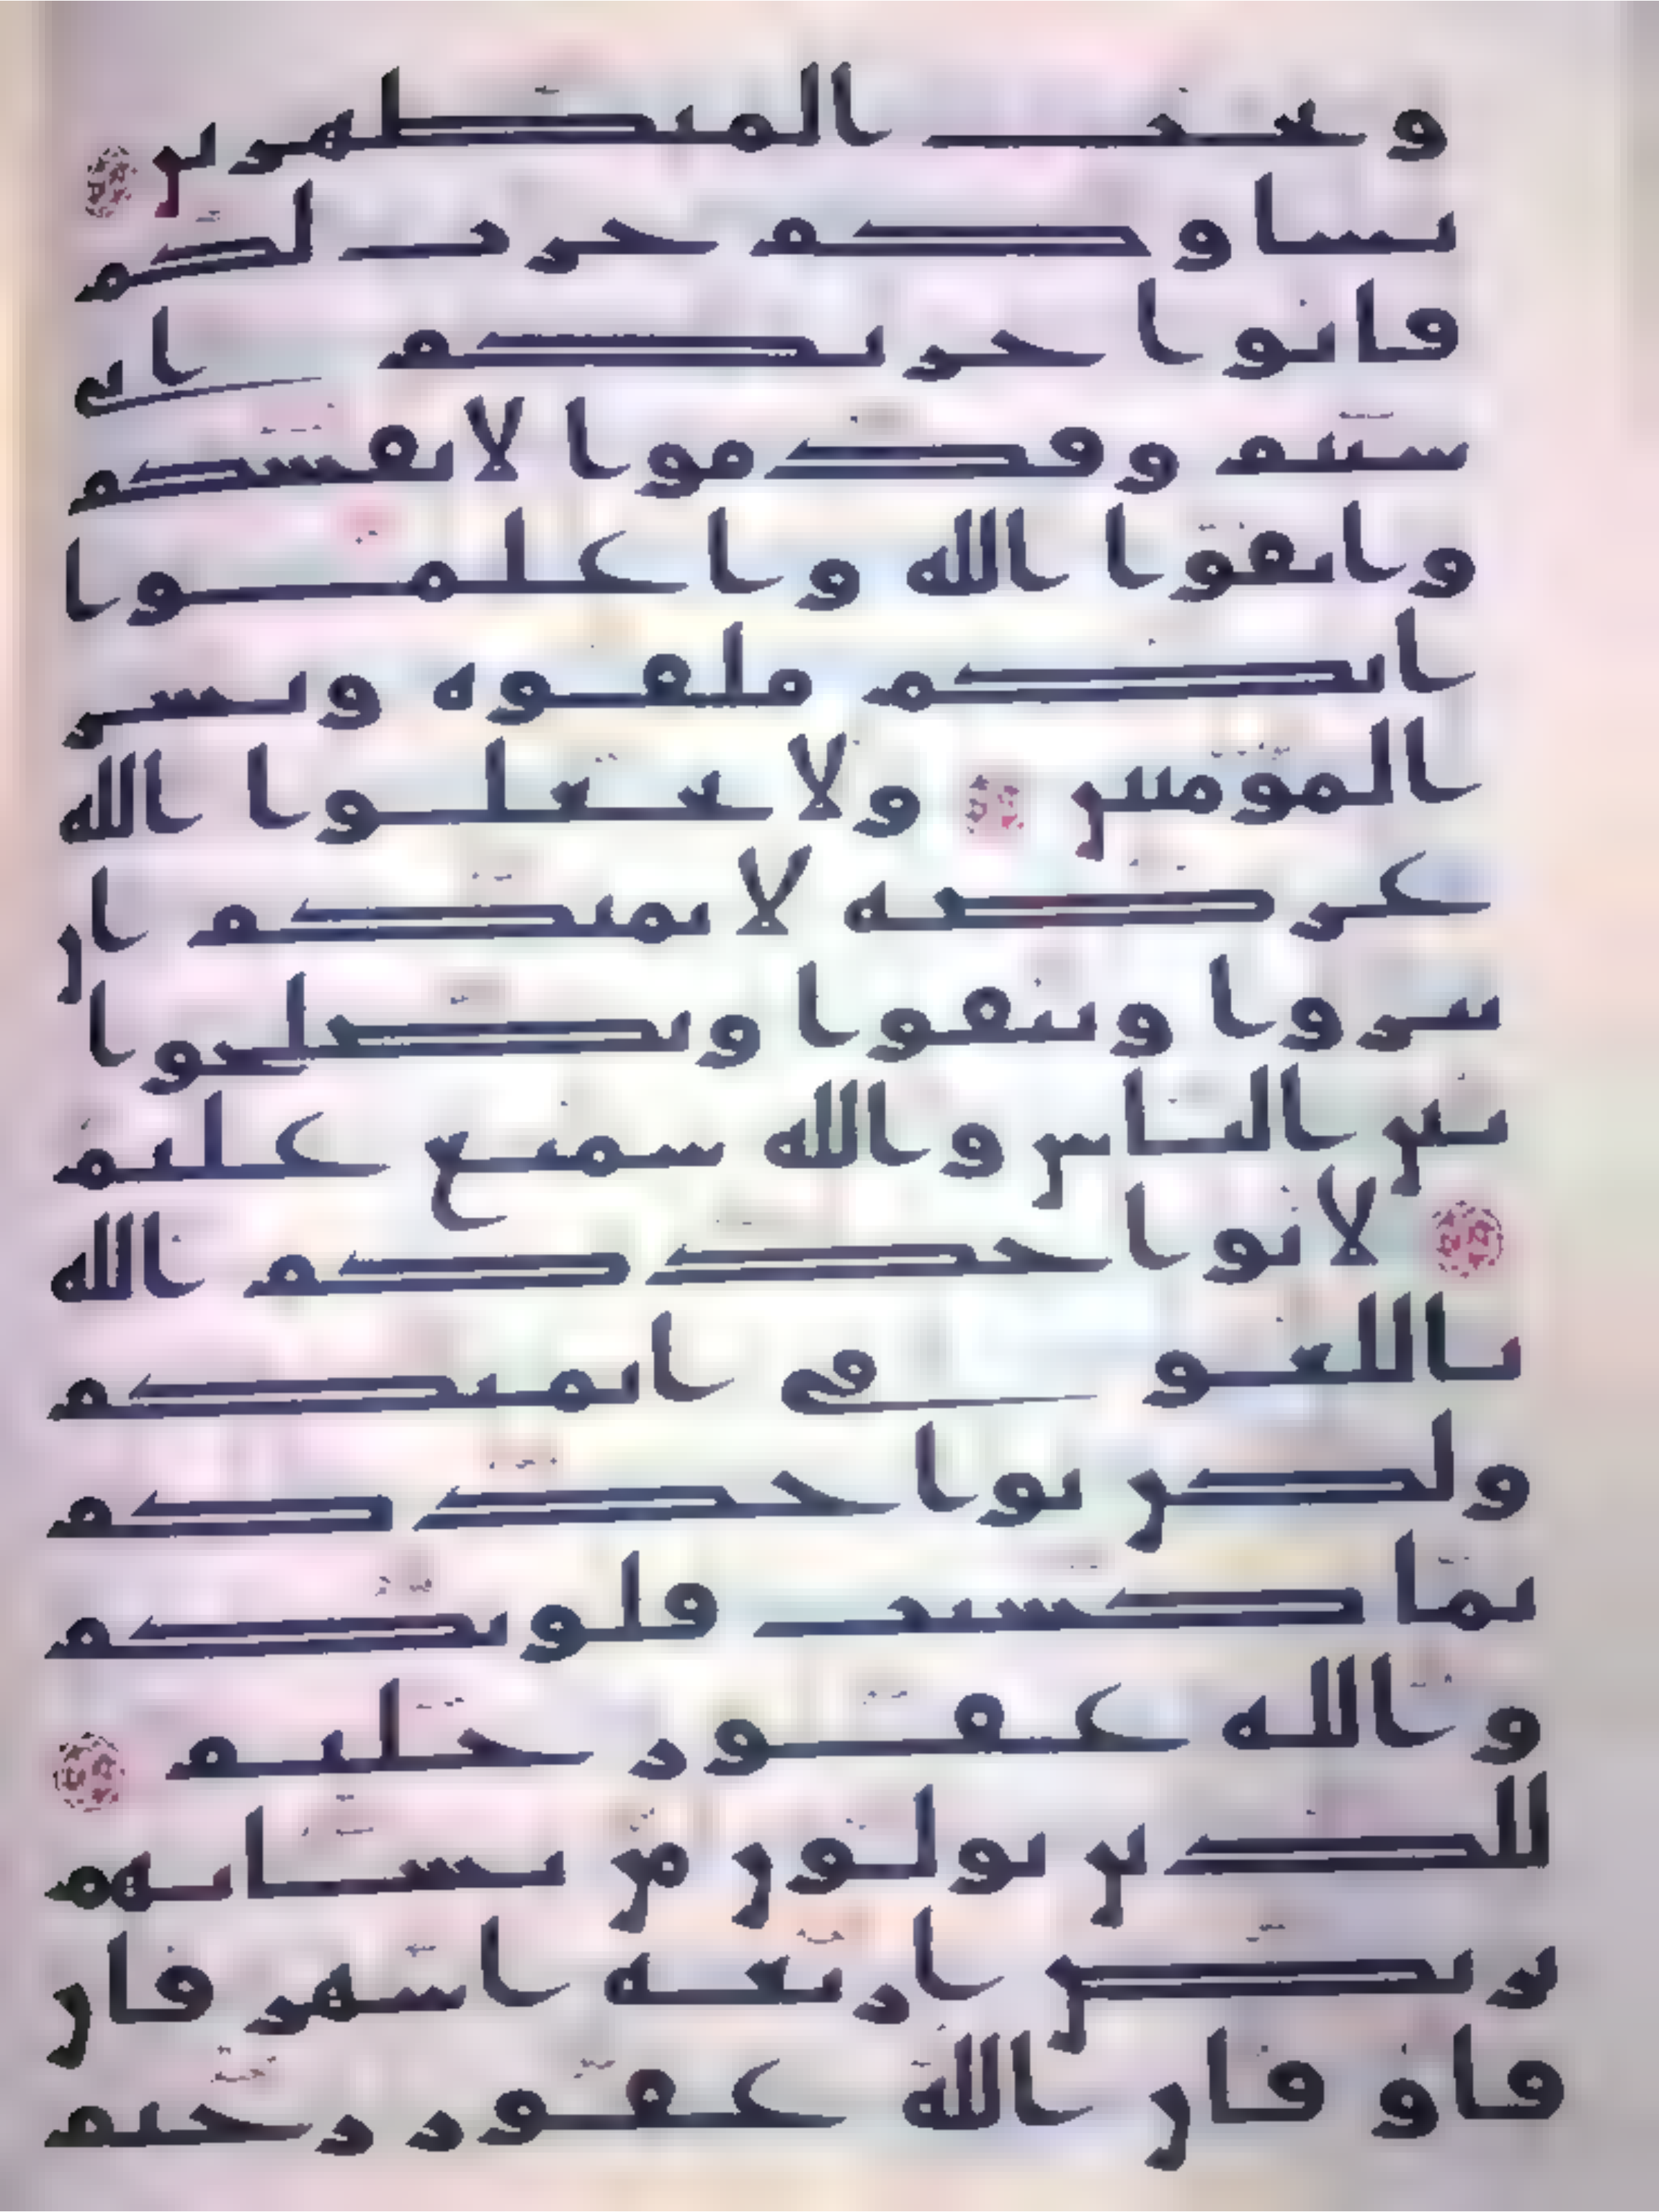 ويحب المتطهرين
نساوكم حرث لكم
فاتوا حرثكم انى
شئتم وقدموا لانفسكم
واتقوا الله واعلموا
انكم ملقوه وبشر
المومنين ولا تجعلوا الله
عرضة لايمنكم ان
تبروا وتتقوا وتصلحوا
بين الناس والله سميع عليم
لا يواخذكم الله
باللغو في ايمنكم
ولكن يواخذكم
بما كسبت قلوبكم
والله غفور حليم
للذين يولون من نسايهم
تربص اربعة اشهر فان
فاو فان الله غفور رحيم